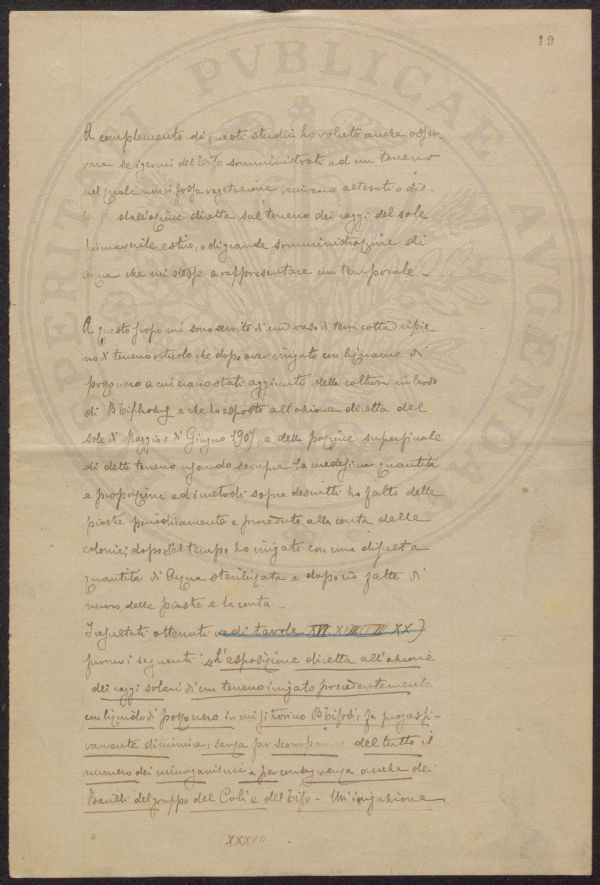 19
A complemento di questi studii ho voluto anche osser-
vare se i germi del tifo somministrati ad un terreno
nel quale non vi fosse vegetazione venivano alterati o dis-
dall'azione diretta sul terreno dei raggi del sole
primaverile estivo, o di grande somministrazione di
acqua che mi stesse a rappresentare un temporale -
A questo scopo mi sono servito di un vaso di terra cotta ripie-
no di terreno orticolo che dopo aver irrigato con liquame di
pozzo nero a cui erano stati aggiunti della coltura in brodo
di B Tiphosus e che ho esposto all'azione diretta del
sole di Maggio e di Giugno 1907, e della porzione superficiale
di detto terreno usando sempre la medesima quantità
e proporzioni ed i metodi sopra descritti ho fatto delle
piastre periodicamente e proceduto alla conta delle
colonie; dopo del tempo ho irrigato con una discreta
quantità di acqua sterilizzata e dopo ciò fatte di
nuovo delle piastre e la conta -
I resultati ottenuti vedi tavole XVI XVIII XX)
furono i seguenti "L'esposizione diretta all'azione
dei raggi solari di un terreno irrigato precedentemente
con liquido di pozzo nero in cui si trovino B Tifosi, fa progressi-
vamente diminuire, senza far scomparire del tutto il
numero dei microrganismi e per conseguenza anche dei
Bacilli del gruppo del Coli e del Tifo - Un'irrigazione
XXXVII
PVBLICAE